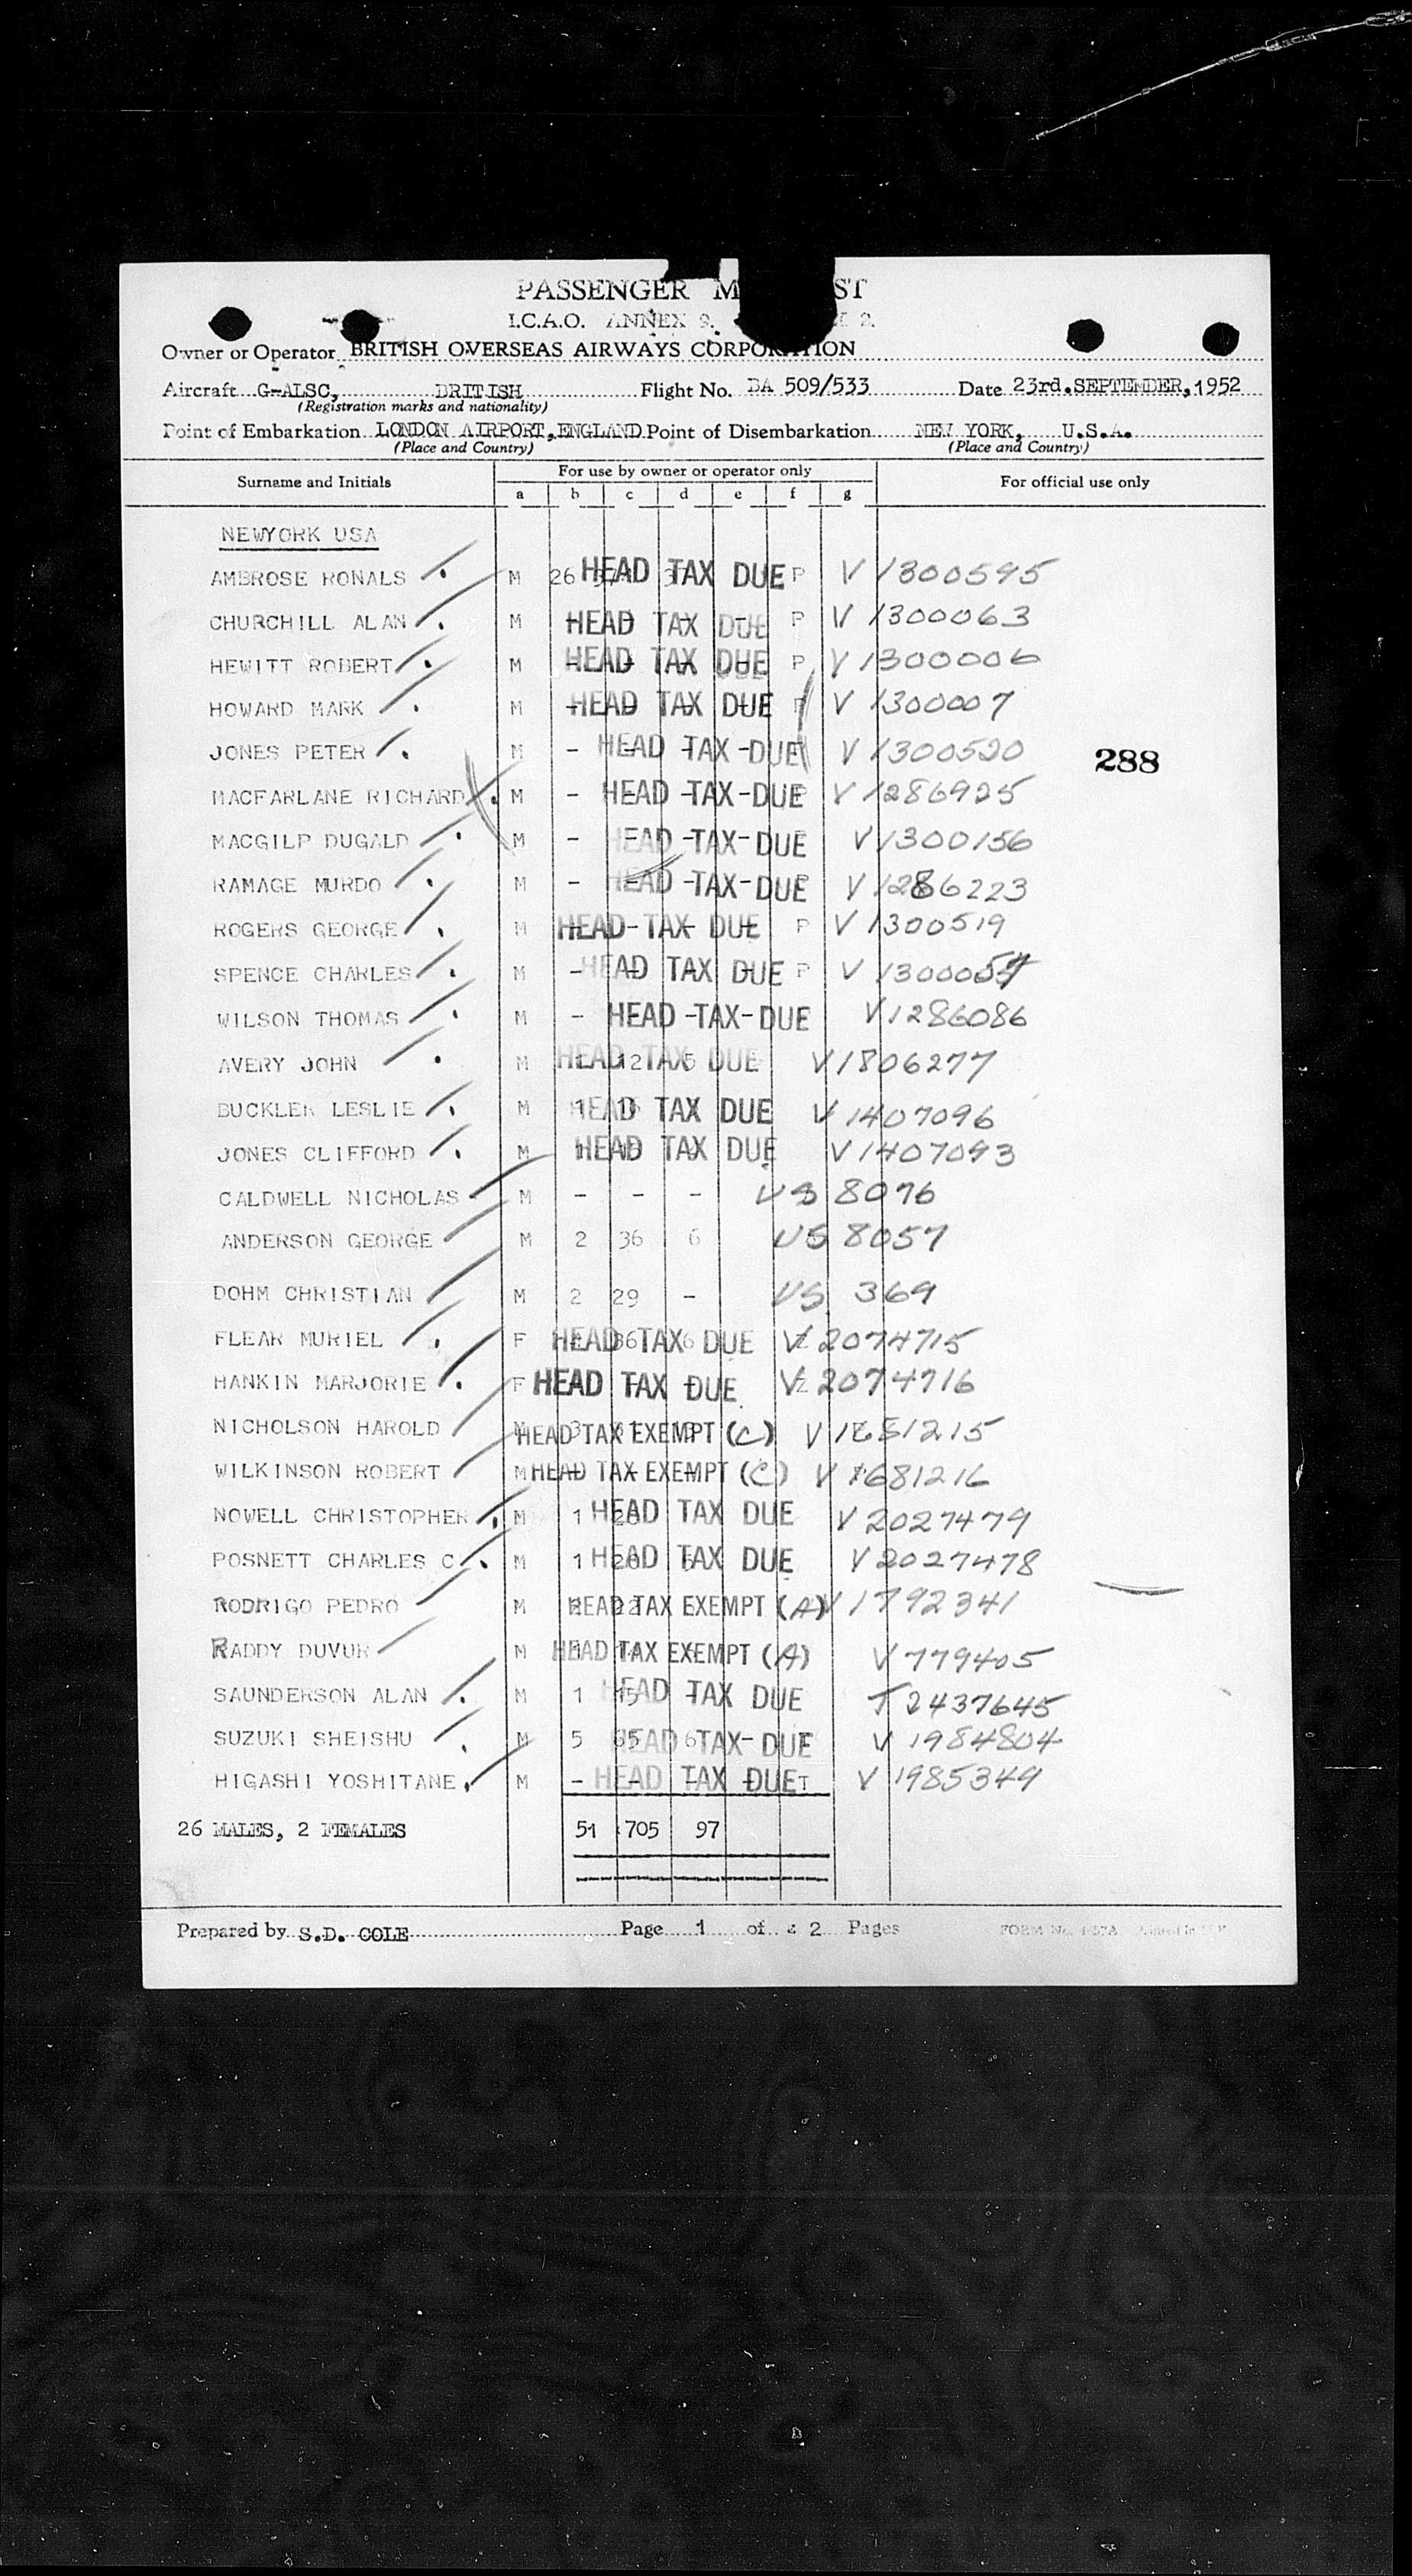 PASSENGER M ST
I.C.A.O. ANNEX 9. 2.
Owner or Operator BRITISH OVERSEAS AIRWAYS CORPORATION
Aircraft G-ALSC, BRITISH Flight No. BA 509/533 Date 23rd.SEPTEMBER,1952
(Registration marks and nationality)
Point of Embarkation LONDON AIRPORT,ENGLAND Point of Disembarkation NEW YORK, U.S.A.
(Place and Country) (Place and Country)
Surname and Initials For use by owner or operator only For official use only
a b c d e f g
NEWYORK USA
AMBROSE RONALS M 26 HEAD TAX DUE P V 1300595
CHURCHILL ALAN M HEAD TAX DUE P V 1300063
HEWITT ROBERT M HEAD TAX DUE P V 1300006
HOWARD MARK M HEAD TAX DUE P V 1300007
JONES PETER M - HEAD TAX DUE V 1300520
288
MACFARLANE RICHARD M - HEAD TAX DUE V 1286925
MACGILP DUGALD M - HEAD TAX DUE V 1300156
RAMAGE MURDO M - HEAD TAX DUE V 1286223
ROGERS GEORGE M HEAD TAX DUE P V 1300519
SPENCE CHARLES M - HEAD TAX DUE P V
WILSON THOMAS M - HEAD TAX DUE V 1286086
AVERY JOHN M 1 12 5 HEAD TAX DUE V 1806277
BUCKLER LESLIE M 1 HEAD TAX DUE V 1407096
JONES CLIFFORD M HEAD TAX DUE V 1407093
CALDWELL NICHOLAS M - - - US 8076
ANDERSON GEORGE M 2 36 6 US 8057
DOHM CHRISTIAN M 2 29 - US 369
FLEAR MURIEL F 36 6 HEAD TAX DUE V 2074715
HANKIN MARJORIE F HEAD TAX DUE V 2074716
NICHOLSON HAROLD M 3 HEAD TAX EXEMPT (C) V 1681215
WILKINSON ROBERT M HEAD TAX EXEMPT (C) V 1681216
NOWELL CHRISTOPHER M 1 20 HEAD TAX DUE V 2027479
POSNETT CHARLES C M 1 20 HEAD TAX DUE V 2027478
RODRIGO PEDRO M HEAD TAX EXEMPT (A) V 1792341
RADDY DUVUR M HEAD TAX EXEMPT (A) V 779405
SAUNDERSON ALAN M 1 15 HEAD TAX DUE T 2437645
SUZUKI SHEISHU M 5 65 6 HEAD TAX DUE V 1984804
HIGASHI YOSHITANE M - HEAD TAX DUE T V 1985349
26 MALES, 2 FEMALES 51 705 97
Prepared by S.D. COLE Page 1 of 2 Pages FORM No.